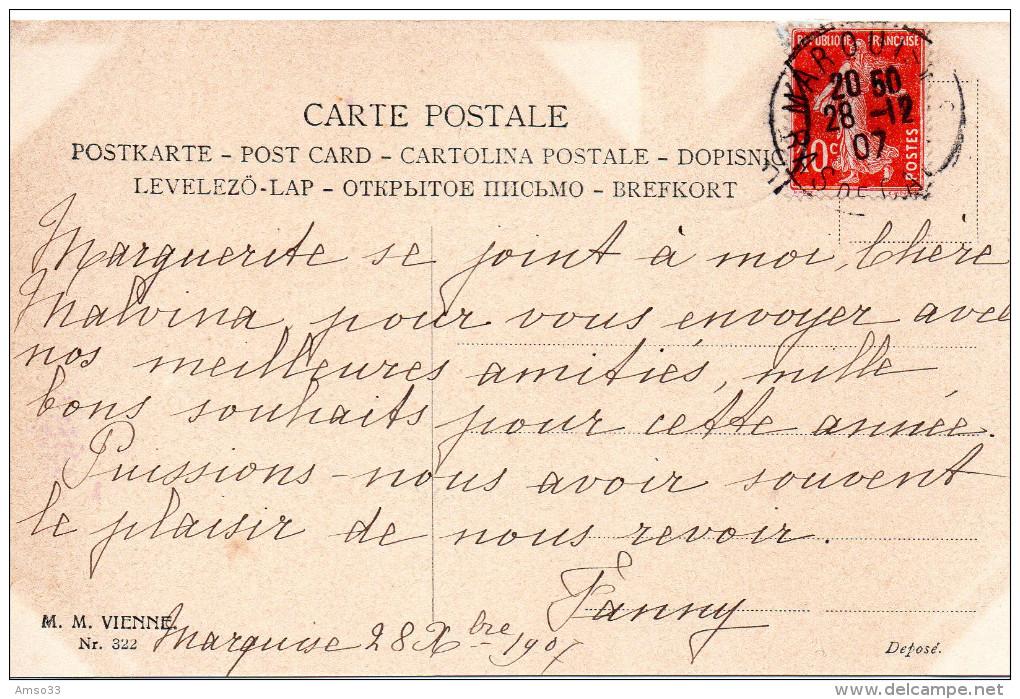 CARTE POSTALE
POSTKARTE – POST CARD – CARTOLINA POSTALE – DOPISNIC
LEVELEZŐ-LAP – ОТКРЫТОЕ ПИСЬМО – BREFKORT
RÉPUBLIQUE FRANÇAISE
10c
POSTES
MARQUI
20 50
28 -12
07
Marguerite se joint à moi, Chère
Malvina, pour vous envoyer avec
nos meilleures amitiés, mille
bons souhaits pour cette année.
Puissions-nous avoir souvent
le plaisir de nous revoir.
Fanny
M. M. VIENNE.
Nr. 322
Marquise 28 Xbre 1907
Deposé.
Amso33
delcampe.net